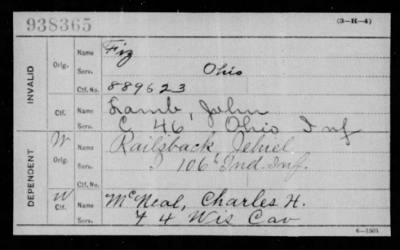 938365 (3-H-4)
INVALID
Orig. Name Fix
Serv. Ohio
Ctf. No. 889623
Ctf. Name Lamb, John
Serv. C 46 Ohio Inf
DEPENDENT
W Orig. Name Railsback Jehiel
Serv. 106" Ind. Inf.
Ctf. No.
W Ctf. Name McNeal, Charles H.
Serv. 4 Wis Cav
6-1501